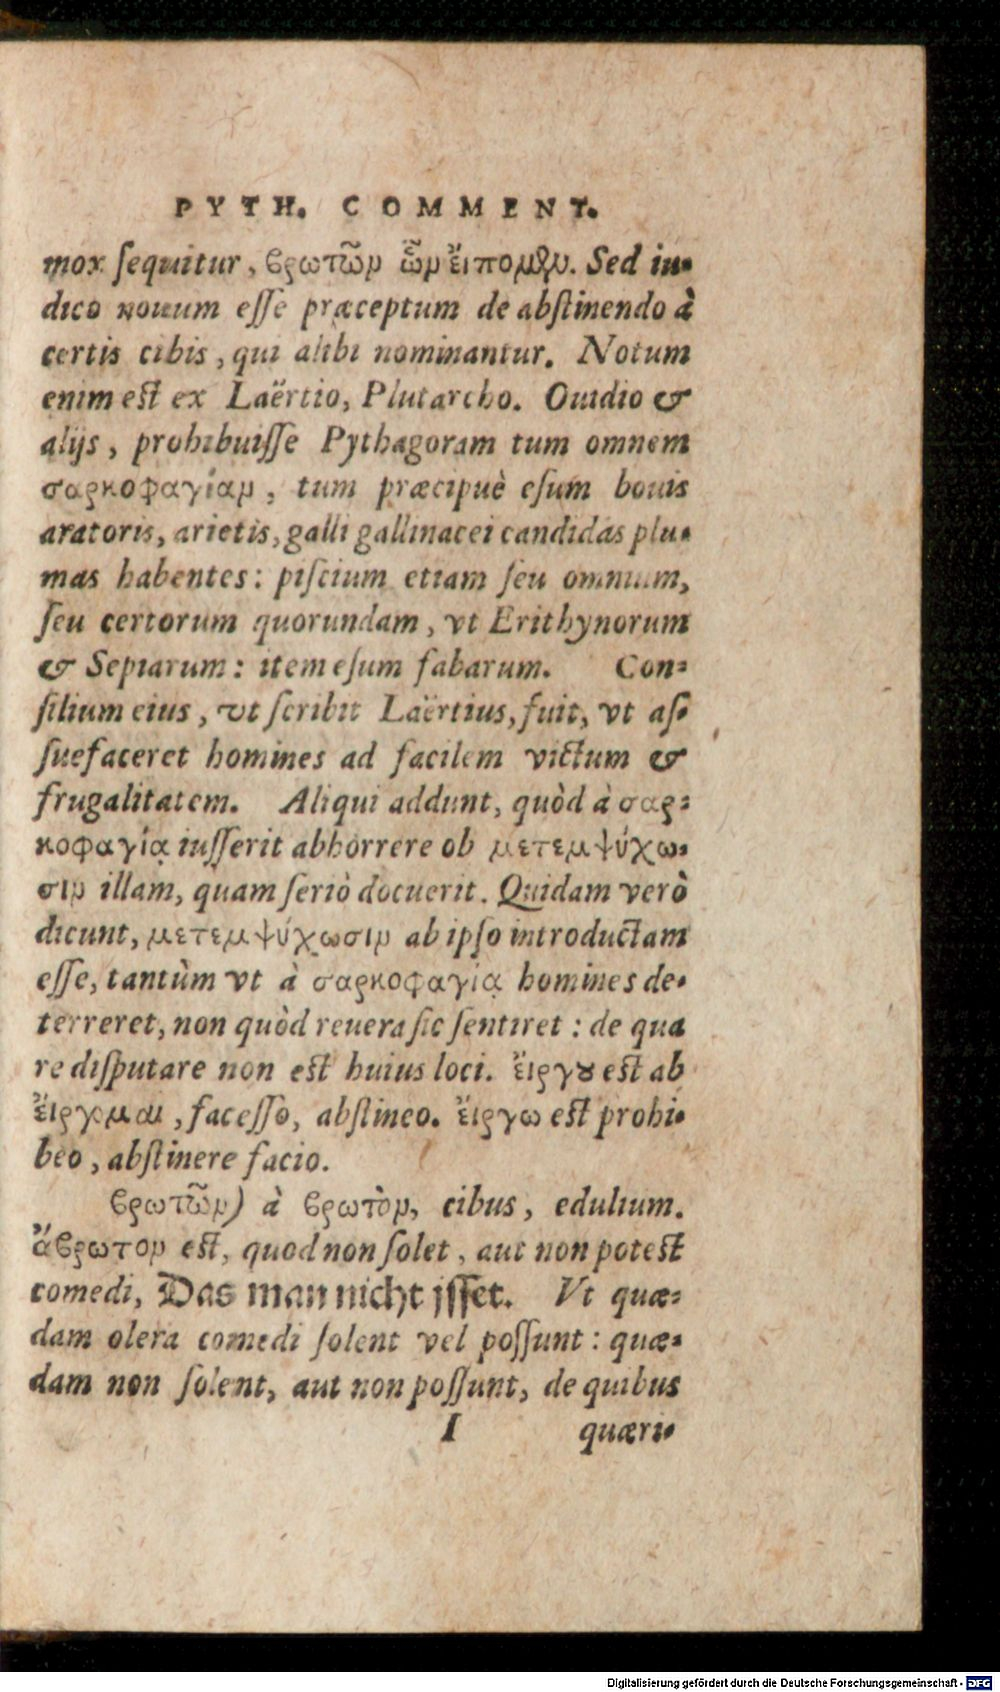 PYTH. COMMENT.
mox sequitur, βρωτῶν ὧν ἔιπομεν. Sed iu-
dico nouum esse præceptum de abstinendo à
certis cibis, qui alibi nominantur. Notum
enim est ex Laërtio, Plutarcho. Ouidio &
alijs, prohibuisse Pythagoram tum omnem
σαρκοφαγίαν, tum præcipuè esum bouis
aratoris, arietis, galli gallinacei candidas plu-
mas habentes: piscium etiam seu omnium,
seu certorum quorundam, vt Erithynorum
& Sepiarum: item esum fabarum. Con-
silium eius, vt scribit Laërtius, fuit, vt as-
suefaceret homines ad facilem victum &
frugalitatem. Aliqui addunt, quòd à σαρ-
κοφαγίᾳ iusserit abhorrere ob μετεμψύχω-
σιν illam, quam seriò docuerit. Quidam verò
dicunt, μετεμψύχωσιν ab ipso introductam
esse, tantùm vt à σαρκοφαγίᾳ homines de-
terreret, non quòd reuera sic sentiret: de qua
re disputare non est huius loci. ἔιργου est ab
ἔιργομαι, facesso, abstineo. ἔιργω est prohi-
beo, abstinere facio.
βρωτῶν) à βρωτὸν, cibus, edulium.
ἄβρωτον est, quod non solet, aut non potest
comedi, Das man nicht jsset. Vt quæ-
dam olera comedi solent vel possunt: quæ-
dam non solent, aut non possunt, de quibus
I quæri-
Digitalisierung gefördert durch die Deutsche Forschungsgemeinschaft - DFG